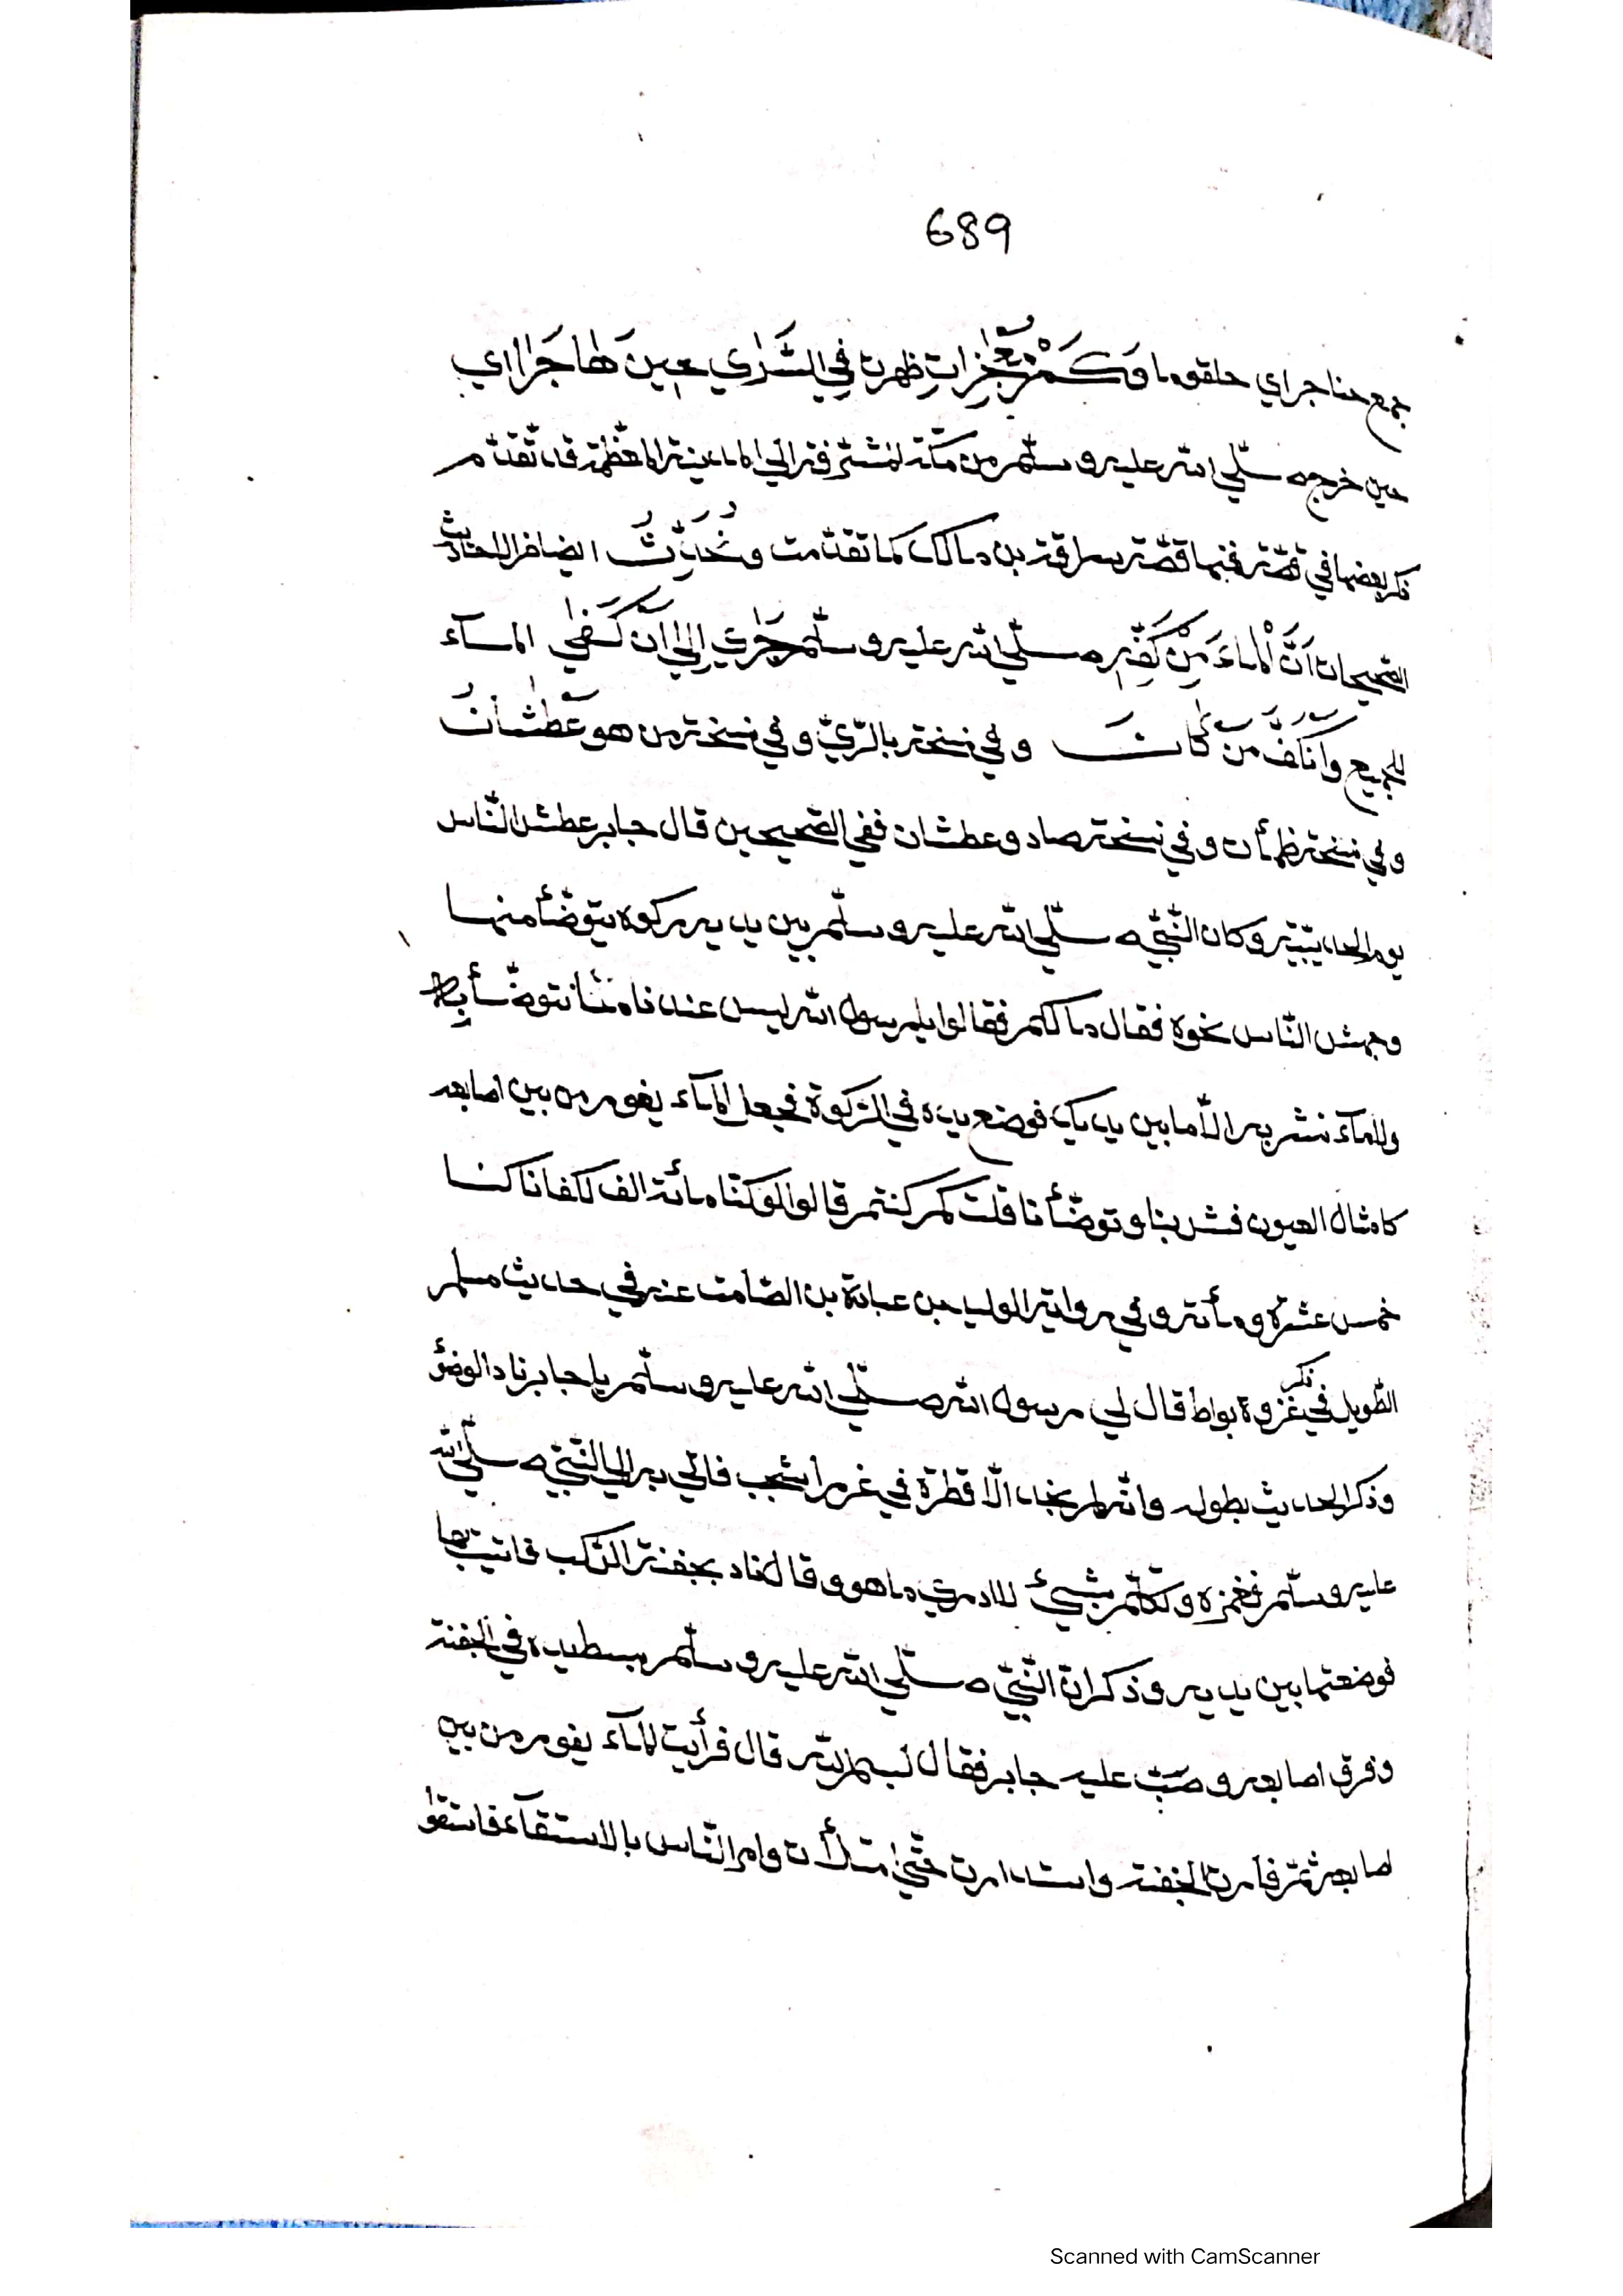 689
جمع حناجر اي حلقوم ما وَكَمْ مُعْجِزَاتٍ ظهرت فِي السُّرٰي حِينَ هَاجَرَا اي
حين خرج صلّي الله عليه وسلّم من مكّة المشرّفة الي المدينة المعظّمة قد تقدّم
ذكر بعضها في قصّة فيها قصّة سراقة بن مالك كما تقدّمت وَحُدِّثُ ايضا في الاحاديث
الصّحيحات اَنَّ الْمَاءَ مِنْ كَفِّهِ صلّي الله عليه وسلّم جَرٰي إِلٰي اَنْ كَفٰي المآء
للجميع وَ مَنْ كَانَ وفي نسخة بالرّيّ وفي نسخة من هو عَطْشَانُ
وفي نسخة ظمأن وفي نسخة صاد وعطشان ففي الصّحيحين قال جابر عطش النّاس
يوم الحديبيّة وكان النّبيّ صلّي الله عليه وسلّم بين يديه ركوة يتوضّأ منها
وجهش النّاس نحوه فقال مالكم فقالوا يا رسول الله ليس عندنا ما نتوضّأ به
ولا مآء نشربه الاّ ما بين يديك فوضع يده في الرّكوة فجعل المآء يفور من بين اصابعه
كامثال العيون فشربنا وتوضّأنا قلت كم كنتم قالوا لو كنّا مائة الف لكفانا كنا
خمس عشرة ومأئة وفي رواية الوليد بن عبادة بن الصّامت عنه في حديث مسلم
الطّويل في ذكر غزوة بواط قال لي رسول الله صلّي الله عليه وسلّم يا جابر ناد الوضؤ
وذكر الحديث بطوله وانّه لم يجد الاّ قطرة في عزلا شجب فاتي به الي النّبيّ صلّي الله
عليه وسلّم فغمزه وتكلّم بشيئ لا ادري ما هو وقال ناد بجفنة الرّكب فاتيت بها
فوضعتها بين يديه وذكر انّ النّبيّ صلّي الله عليه وسلّم بسط يده في الجفنة
وفرق اصابعه وصبّ عليه جابر فقال بسم الله قال فرأيت المآء يفور من بين
اصابعه ثمّ فارت الجفنة واستدارت حتّي امتلأت وامر النّاس بالاستقآء فاستقوا
Scanned with CamScanner